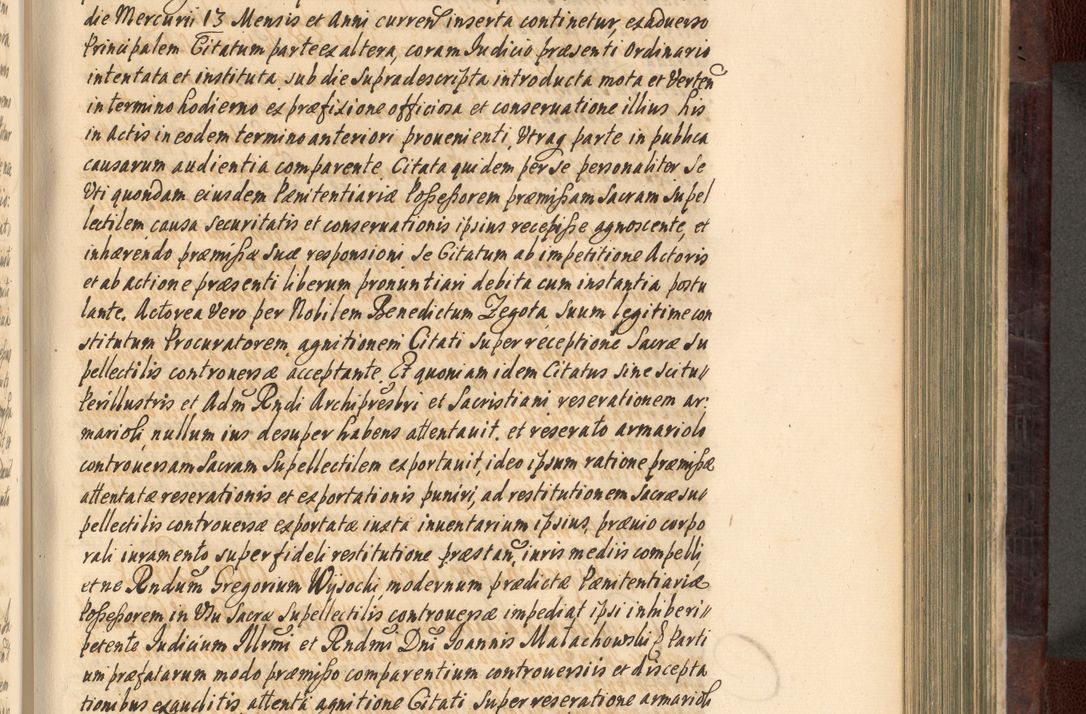 die Mercurii 13 Mensis et Anni curren inserta continetur, ex adverso
Principalem Citatum parte ex altera, coram Iudicio præsenti Ordinario
intentata et instituta sub die supradescripta introducta mota et Verten
in termino hodierno ex præfixione officiosa et conservatione illius his
in Actis in eodem termino anteriori provenienti, Utraq parte in publica
causarum audientia comparente Citata quidem per se personaliter se
Uti quondam eiusdem Pænitentiariæ Poßeßorem præmißam Sacram Supel
lectilem causa securitatis et conservationis ipsius recepiße agnoscente, et
inhærendo præmißæ suæ responsioni se Citatum ab impetitione Actoris
et ab actione præsenti liberum pronuntiari debita cum instantia postu
lante. Actorea Vero per Nobilem Benedictum Zegota, Suum legitime con
stitutum Procuratorem, agnitionem Citati super receptione Sacræ Su
pellectilis controversæ acceptante, Et quoniam idem Citatus sine scitu
Perillustris et Adm Rndi Archipresbri et Sacristiani reserationem ar:
marioli, nullum ius desuper habens attentavit, et reserato armariolo
controversam Sacram Supellectilem exportavit, ideo ipsum ratione præmißæ
attentatæ reserationis et exportationis puniri, ad restitutionem Sacræ su
pellectilis controversæ exportatæ iuxta inventarium ipsius, prævio corpo
rali iuramento super fideli restitutione præstan, iuris mediis compelli,
et ne Rndum Gregorium Wysocki, modernum prædictæ Pænitentiariæ
Poßeßorem in Usu Sacræ Supellectilis controversæ impediat ipsi inhiberi
petente Iudicium Illrmi et Rndmi Dni Ioannis Małachowski Parti
um præfatarum modo præmißo comparentium controversiis et discepta
tionibus exauditis attenta agnitione Citati super reseratione armarioli